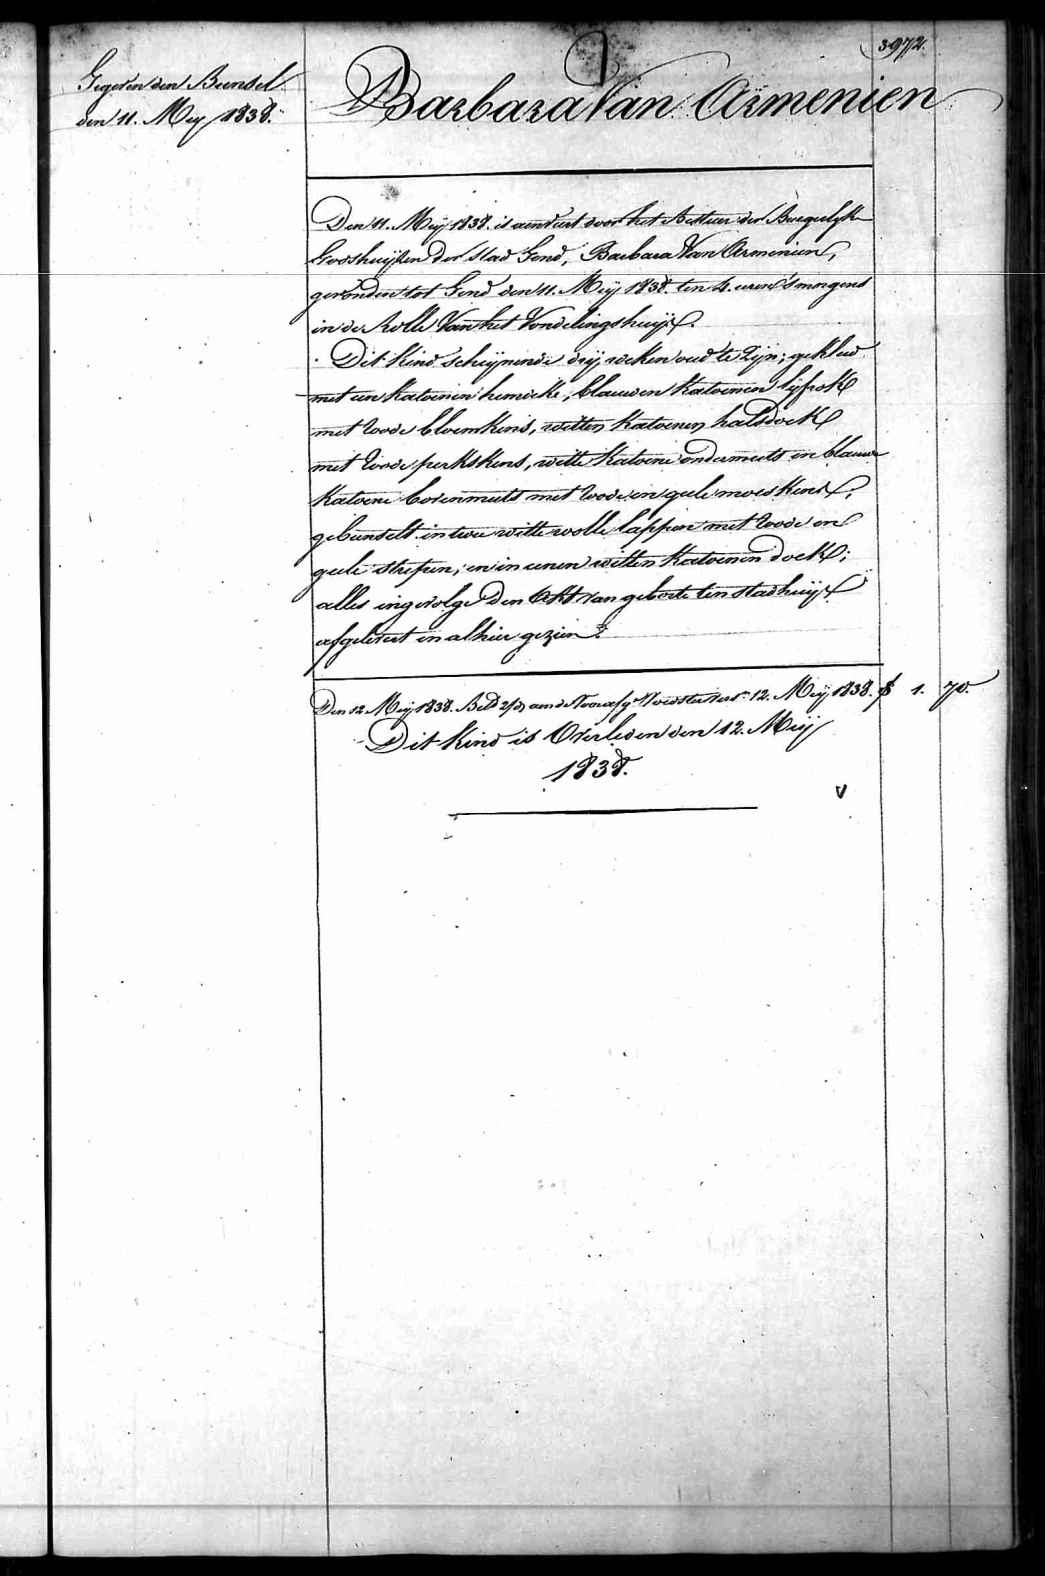 3972.
Gegeven den Bunsel
den 11. Meij 1838.
Barbara Van Armenien
Den 11. Meij 1838. is aenveert door het Bestuer der Burgerlyke
Godshuijsen der stad Gend, Barbara Van Armenien,
gevonden tot Gend den 11. Meij 1838. ten 4. uren 'smorgens
in de Rolle Van het Vondelingshuijs.
Dit Kind scheijnende drij weken oud te Zijn; gekleed
met een Katoenen hemdeke, blauwen Katoenen lijfrok
met roode bloemkens, witten Katoenen halsdoek
met roode perkskens, witte Katoene ondermuts en blauwe
Katoene bovenmuts met roode en geele moeskens;
gebunselt in twee witte wolle lappen met roode en
geele strepen; en in eenen witten Katoenen doek;
alles ingevolge den Akt van geborte ten stadhuijse
afgelevert en alhier gezien.
Den 12. Meij 1838. Bet. aende Voedster tot 12. Meij 1838. f 1. 70.
Dit Kind is Overleden den 12. Meij
1838.